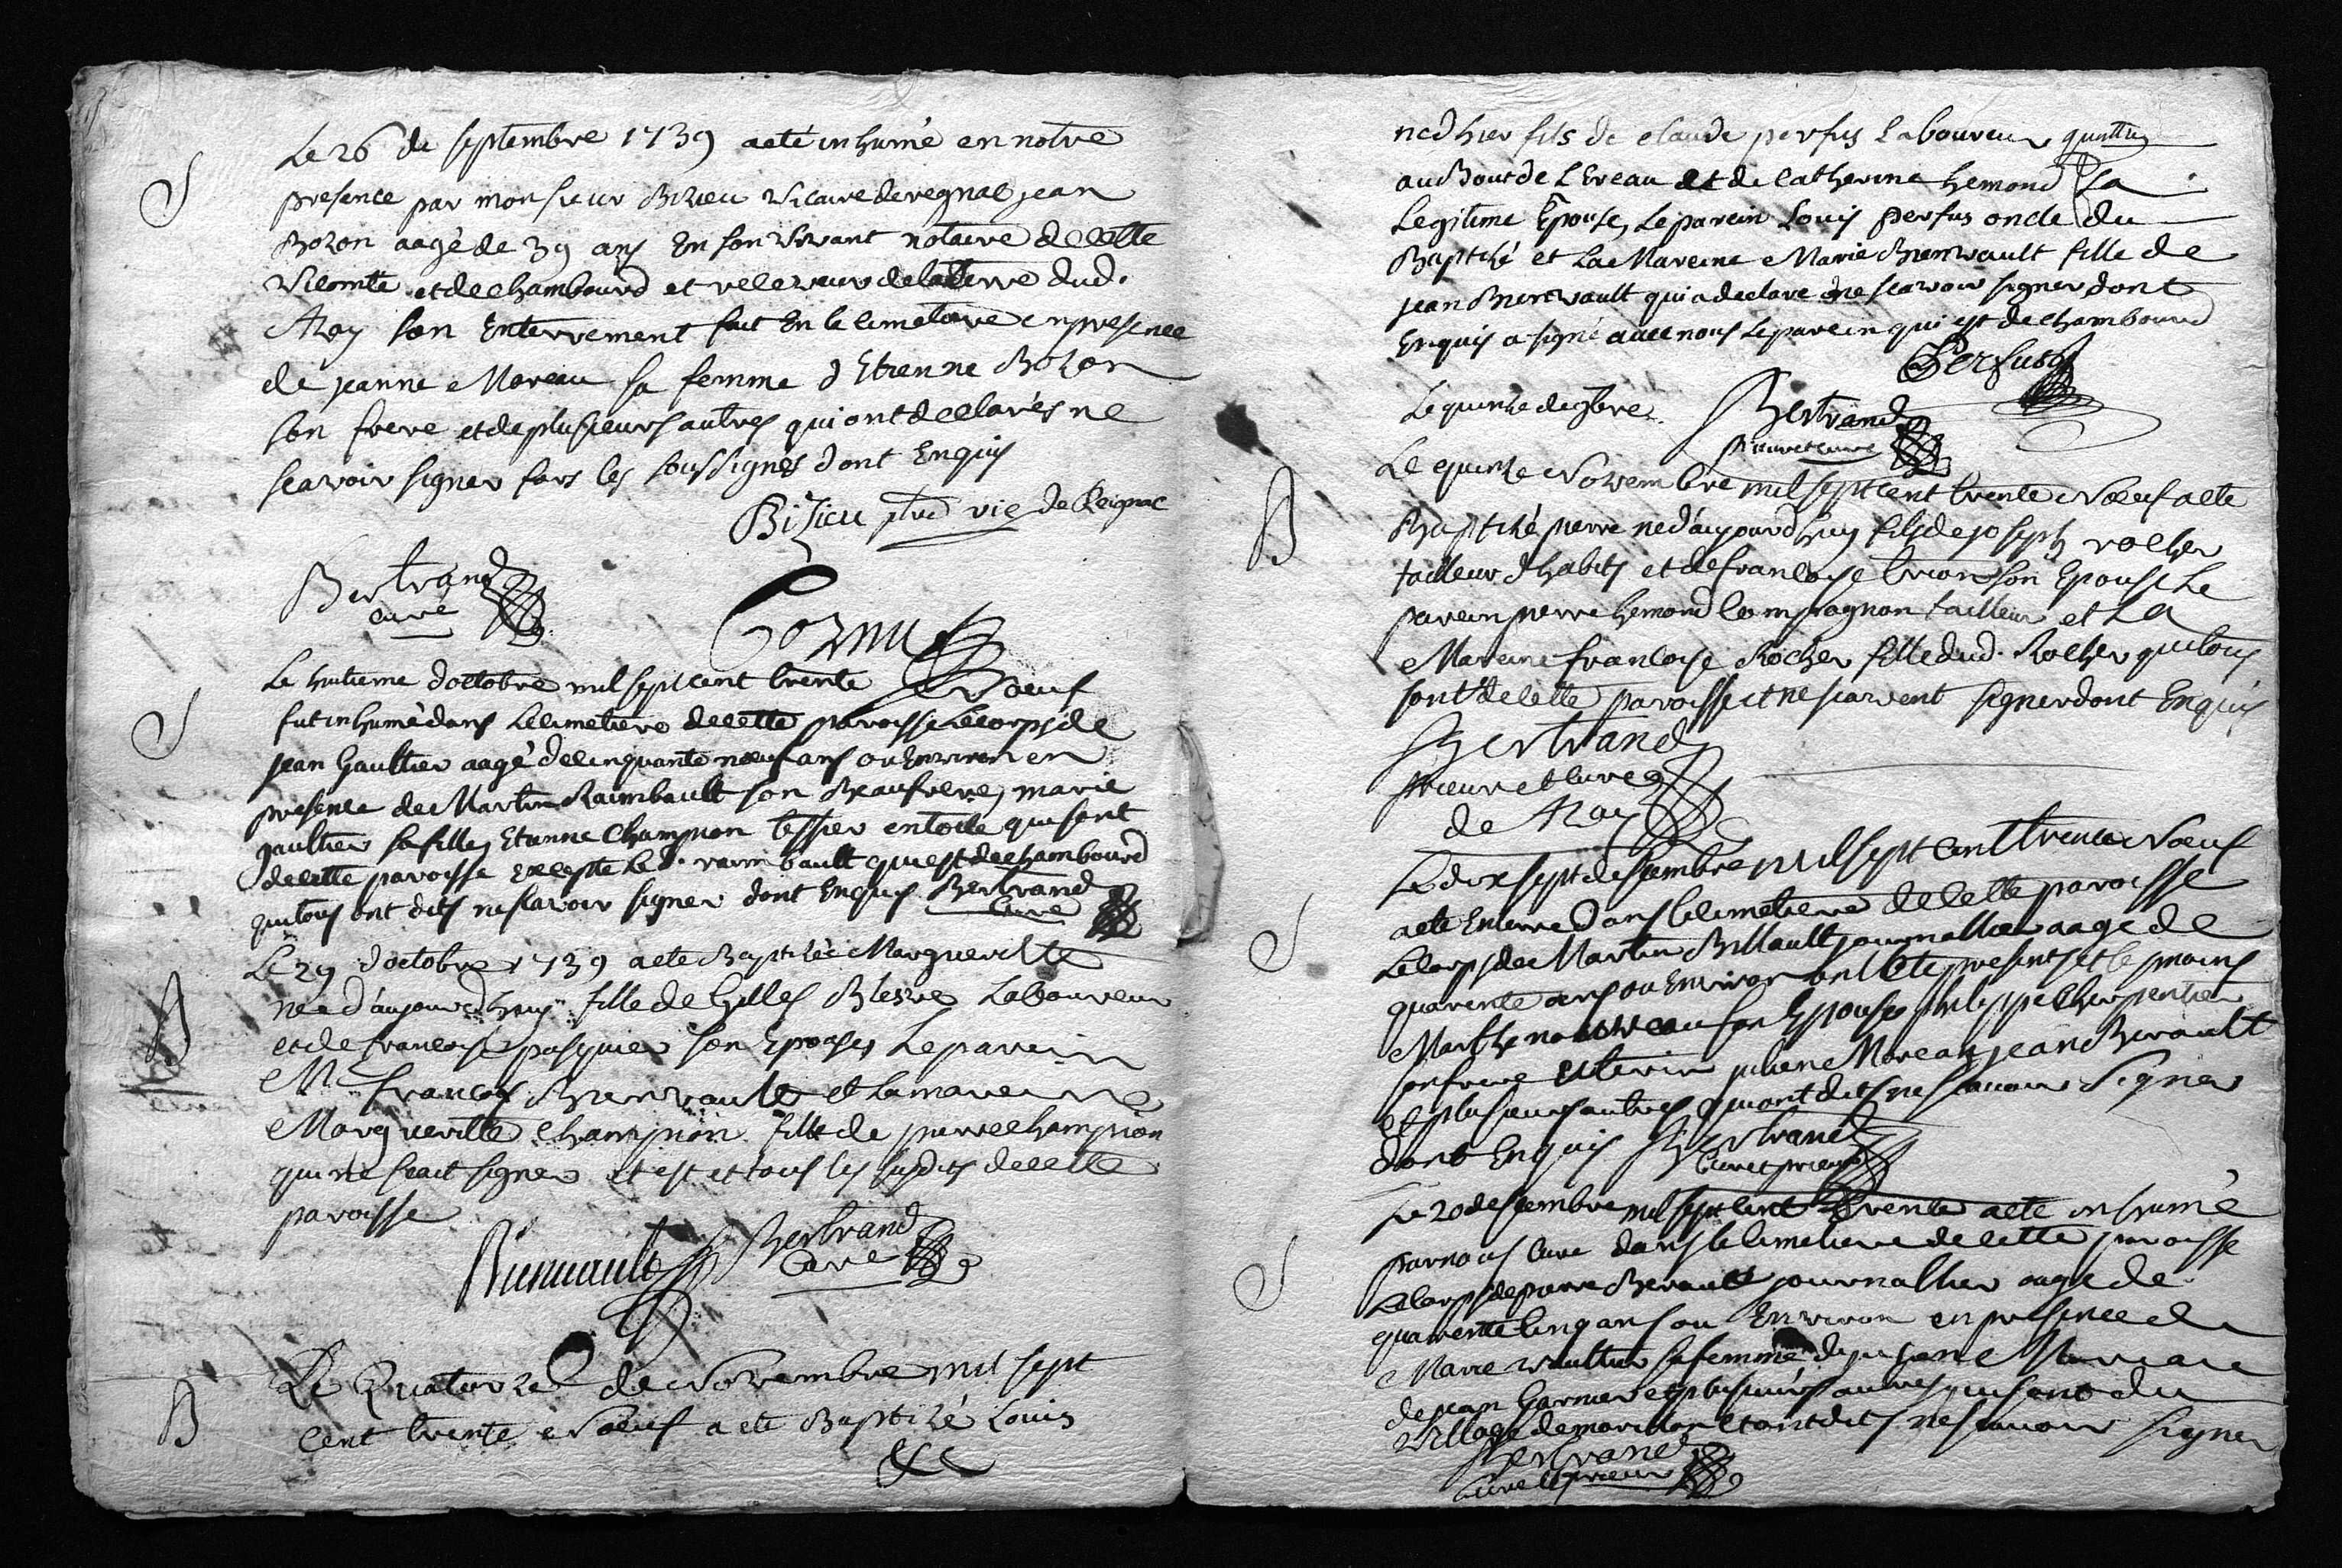 S
Le 26 de septembre 1739 a eté inhumé en notre
presence par monsieur Bizieu vicaire de regnac jean
Bozon aagé de 39 ans En son vivant notaire de cette
vicomté et de chambourd et receveur de la terre dud.
Azay son Enterrement fait En le cimetiere en presence
de jeanne Moreau sa femme d'Etienne Bozon
son frere et de plusieurs autres qui ont declarés ne
scavoir signer fors les soussignés dont Enquis
Bizieu ptre vic de Reignac
Bertrand
curé
Cornu
S
Le huitieme d'octobre mil sept cent trente Noeuf
fut inhumé dans le cimetiere de cette paroisse le corps de
jean Gaultier aagé de cinquante noeuf ans ou Environ en
presence de Martin Raimbault son Beaufrere, marie
gaultier sa fille, Etienne Champion tessier en toile qui sont
de cette paroisse excepté led. raimbault qui est de chambourd
qui tous ont dits ne scavoir signer dont Enquis Bertrand
Curé
B
Le 29 d'octobre 1739 a eté Baptisée Marguerite
née d'aujourd'huy fille de Gilles Blesve Laboureur
et de francoise pasquier son Epouse, Le parein
Mr. francois Bienvault et la mareine
Marguerite Champion fille de pierre champion
qui ne scait signer et est et tous les susdits de cette
paroisse
Bienuault Bertrand
Curé
B
Le Quatorze de Novembre mil sept
Cent trente Noeuf a eté Baptisé Louis
&c
né d'hier fils de claude perfus Laboureur
au Bout de L'Ereau et de Catherine hemond sa
Legitime Epouse, Le parein Louis perfus oncle du
Baptisé et La Mareine Marie Bienvault fille de
jean Bienvault qui a declaré ne scavoir signer dont
Enquis a signé avec nous Le parein qui est de chambourd
Perfus
Le quinze de 9bre. Bertrand
prieur et curé
B
Le quinze Novembre mil sept cent trente Noeuf a eté
Baptisé pierre né d'aujourd'huy fils de joseph rocher
tailleur d'habits et de francoise brion son Epouse Le
parein pierre hemond compagnon tailleur et La
Mareine francoise Rocher fille dud. Rocher qui tous
sont de cette paroisse et ne scavent signer dont Enquis
Bertrand
prieur et curé
de Azay
S
Le dix sept de scembre mil sept Cent trente Noeuf
a eté Enterré dans le cimetiere de cette paroisse
Le corps de Martin Billault journallier aagé de
quarente ans ou Environ ont eté presents et temoins
Marthe nouveau son Epouse philippe Cherpentier
son frere Uterin julien Moreau jean Berault
et plusieurs autres qui ont dits ne scavoir Signer
dont Enquis Bertrand
Curé et prieur
S
Le 20 de scembre mil sept cent trente a eté inhumé
par nous Curé dans le cimetiere de cette paroisse
Le corps de pierre Berault journallier aagé de
quarente cinq ans ou Environ en presence de
Marie vaultier sa femme de jeanne Moreau
de jean Garnier et plusieurs autres qui sont du
village de et ont dits ne scavoir signer
Bertrand
Curé et prieur